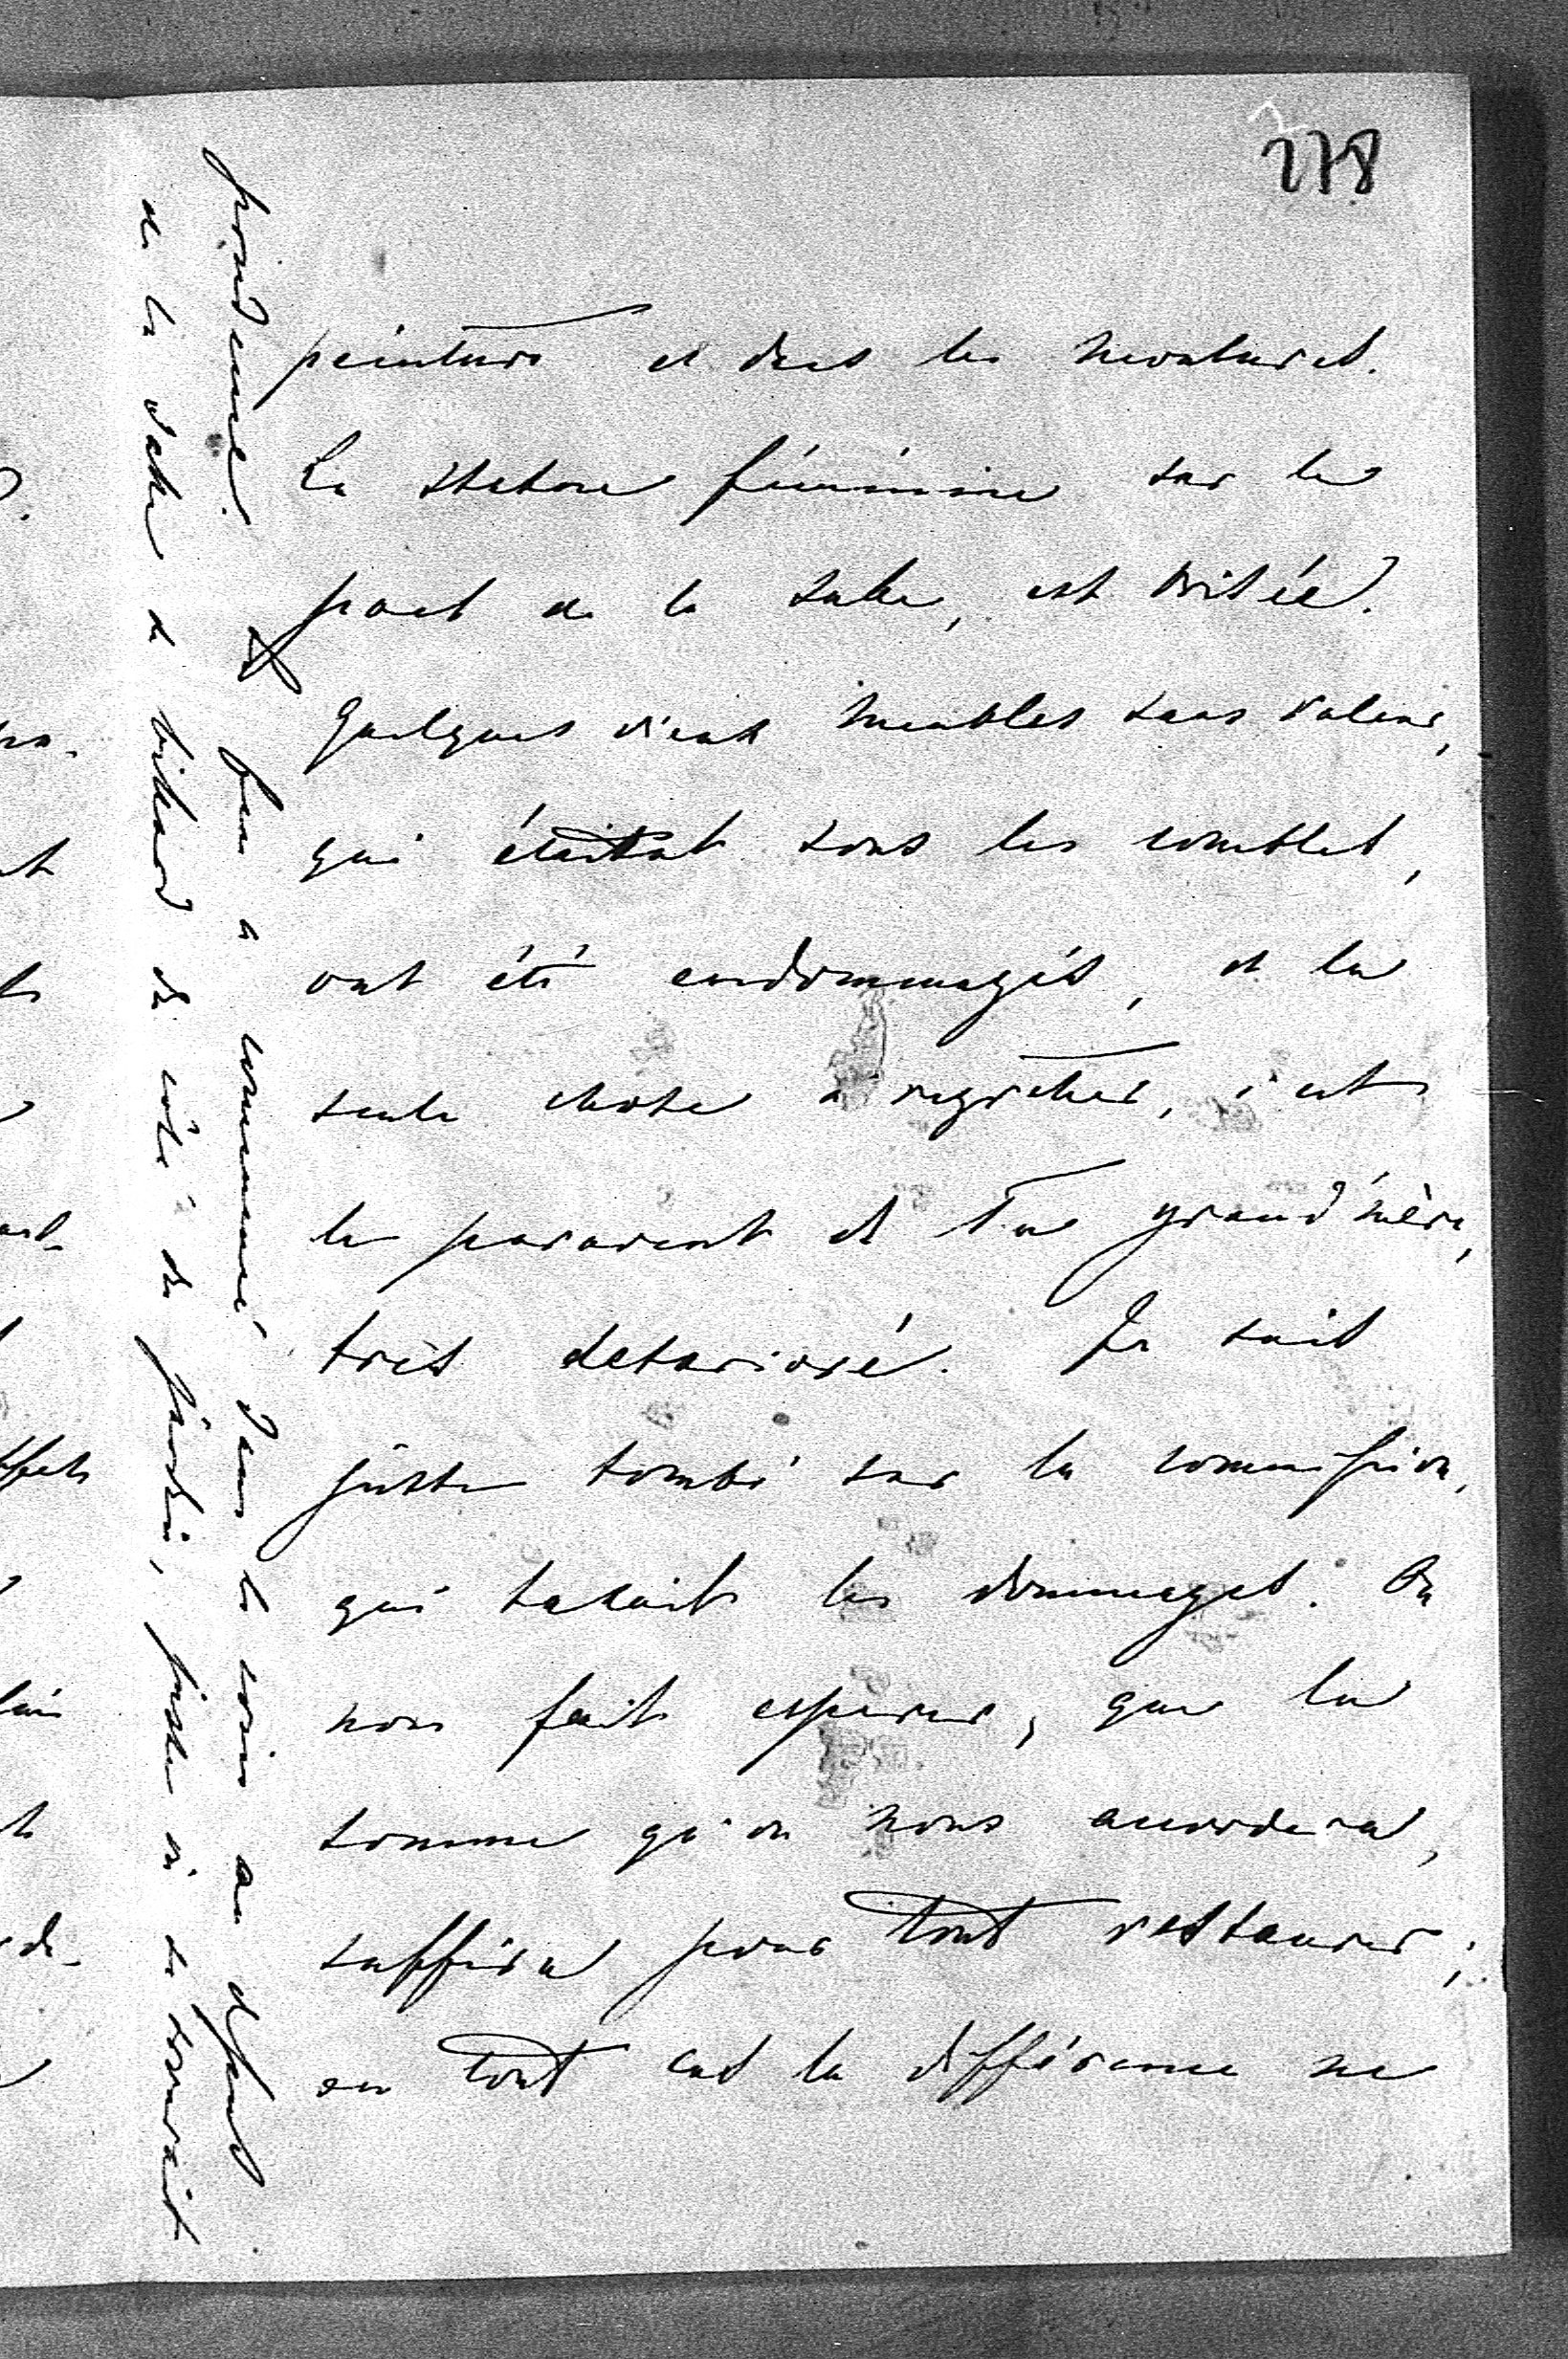 278
peinture et dans les moulures.
La statue féminine sur le
part de la salle, est brisée.
Quelques vieux meubles sans valeur,
qui étaient sous les combles,
ont été endommagés, et la
seule chose à regretter, c'est
le paravent et Ta grand'mère,
très deterioré. Je suis
juste tombé sur la commission,
qui taxait les dommages. On
nous fait esperer, que la
somme qu'on nous accordera,
suffira pour tout restaurer;
en tout cas la différence ne
feu a commencé dans le coin au
de la salle de billard du côté du jardin, juste où se trouvait